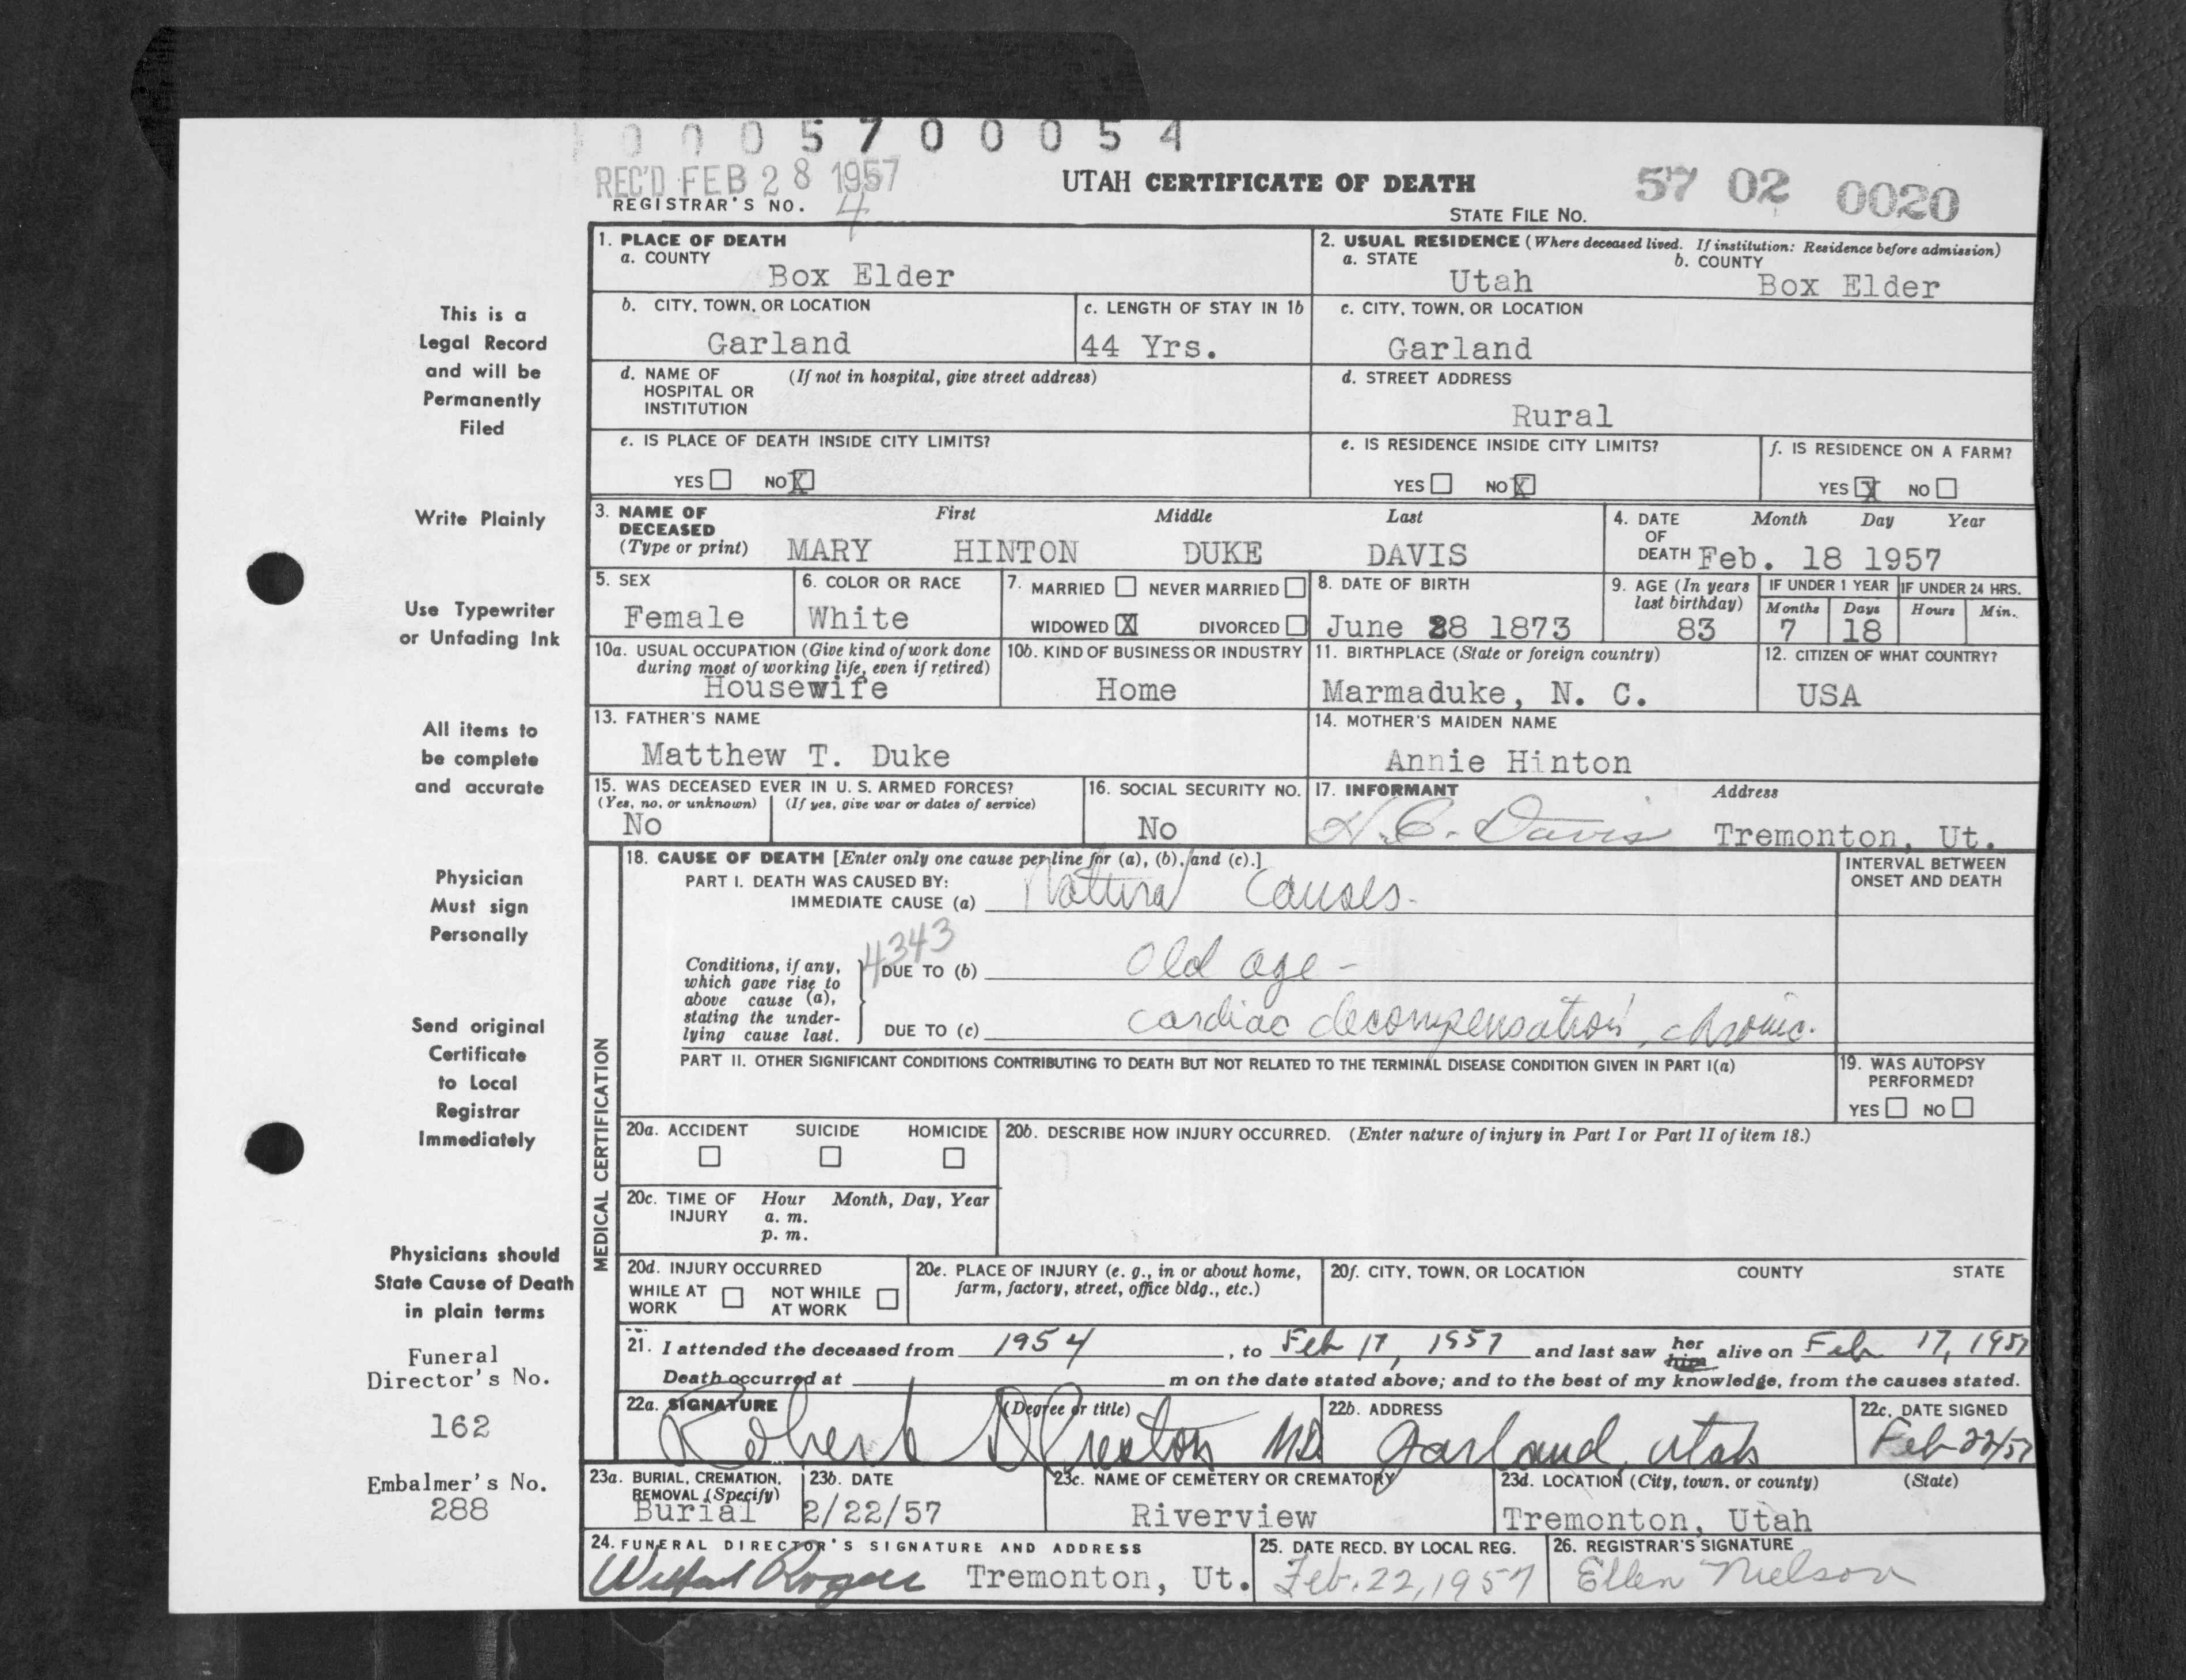 0 0 0 5 7 0 0 0 5 4
REC'D FEB 28 1957
UTAH CERTIFICATE OF DEATH
57 02 0020
REGISTRAR'S NO. 4
STATE FILE NO.
1. PLACE OF DEATH
a. COUNTY
Box Elder
2. USUAL RESIDENCE (Where deceased lived. If institution: Residence before admission)
a. STATE b. COUNTY
Utah Box Elder
b. CITY, TOWN, OR LOCATION
Garland
c. LENGTH OF STAY IN 1b
44 Yrs.
c. CITY, TOWN, OR LOCATION
Garland
d. NAME OF (If not in hospital, give street address)
HOSPITAL OR
INSTITUTION
d. STREET ADDRESS
Rural
e. IS PLACE OF DEATH INSIDE CITY LIMITS?
YES NO X
e. IS RESIDENCE INSIDE CITY LIMITS?
YES NO X
f. IS RESIDENCE ON A FARM?
YES X NO
3. NAME OF First Middle Last
DECEASED
(Type or print) MARY HINTON DUKE DAVIS
4. DATE Month Day Year
OF
DEATH Feb. 18 1957
5. SEX
Female
6. COLOR OR RACE
White
7. MARRIED NEVER MARRIED
WIDOWED X DIVORCED
8. DATE OF BIRTH
June 28 1873
9. AGE (In years
last birthday)
83
IF UNDER 1 YEAR
Months Days
7 18
IF UNDER 24 HRS.
Hours Min.
10a. USUAL OCCUPATION (Give kind of work done
during most of working life, even if retired)
Housewife
10b. KIND OF BUSINESS OR INDUSTRY
Home
11. BIRTHPLACE (State or foreign country)
Marmaduke, N. C.
12. CITIZEN OF WHAT COUNTRY?
USA
13. FATHER'S NAME
Matthew T. Duke
14. MOTHER'S MAIDEN NAME
Annie Hinton
15. WAS DECEASED EVER IN U. S. ARMED FORCES?
(Yes, no, or unknown) (If yes, give war or dates of service)
No
16. SOCIAL SECURITY NO.
No
17. INFORMANT Address
H. C. Davis Tremonton, Ut.
MEDICAL CERTIFICATION
18. CAUSE OF DEATH [Enter only one cause per line for (a), (b), and (c).]
PART I. DEATH WAS CAUSED BY:
IMMEDIATE CAUSE (a) Natural Causes.
INTERVAL BETWEEN
ONSET AND DEATH
4343
Conditions, if any,
which gave rise to
above cause (a),
stating the under-
lying cause last.
DUE TO (b) Old age -
DUE TO (c) cardiac decompensation, chronic.
PART II. OTHER SIGNIFICANT CONDITIONS CONTRIBUTING TO DEATH BUT NOT RELATED TO THE TERMINAL DISEASE CONDITION GIVEN IN PART I(a)
19. WAS AUTOPSY
PERFORMED?
YES NO
20a. ACCIDENT SUICIDE HOMICIDE
20b. DESCRIBE HOW INJURY OCCURRED. (Enter nature of injury in Part I or Part II of item 18.)
20c. TIME OF Hour Month, Day, Year
INJURY a. m.
p. m.
20d. INJURY OCCURRED
WHILE AT NOT WHILE
WORK AT WORK
20e. PLACE OF INJURY (e. g., in or about home,
farm, factory, street, office bldg., etc.)
20f. CITY, TOWN, OR LOCATION COUNTY STATE
21. I attended the deceased from 1954, to Feb 17, 1957 and last saw her him alive on Feb 17, 1957
Death occurred at m on the date stated above; and to the best of my knowledge, from the causes stated.
22a. SIGNATURE (Degree or title)
Robert D Preston MD
22b. ADDRESS
Garland, Utah
22c. DATE SIGNED
Feb 22/57
23a. BURIAL, CREMATION,
REMOVAL (Specify)
Burial
23b. DATE
2/22/57
23c. NAME OF CEMETERY OR CREMATORY
Riverview
23d. LOCATION (City, town, or county) (State)
Tremonton, Utah
24. FUNERAL DIRECTOR'S SIGNATURE AND ADDRESS
Rogers Tremonton, Ut.
25. DATE RECD. BY LOCAL REG.
Feb. 22, 1957
26. REGISTRAR'S SIGNATURE
Ellen Nielson
This is a
Legal Record
and will be
Permanently
Filed
Write Plainly
Use Typewriter
or Unfading Ink
All items to
be complete
and accurate
Physician
Must sign
Personally
Send original
Certificate
to Local
Registrar
Immediately
Physicians should
State Cause of Death
in plain terms
Funeral
Director's No.
162
Embalmer's No.
288